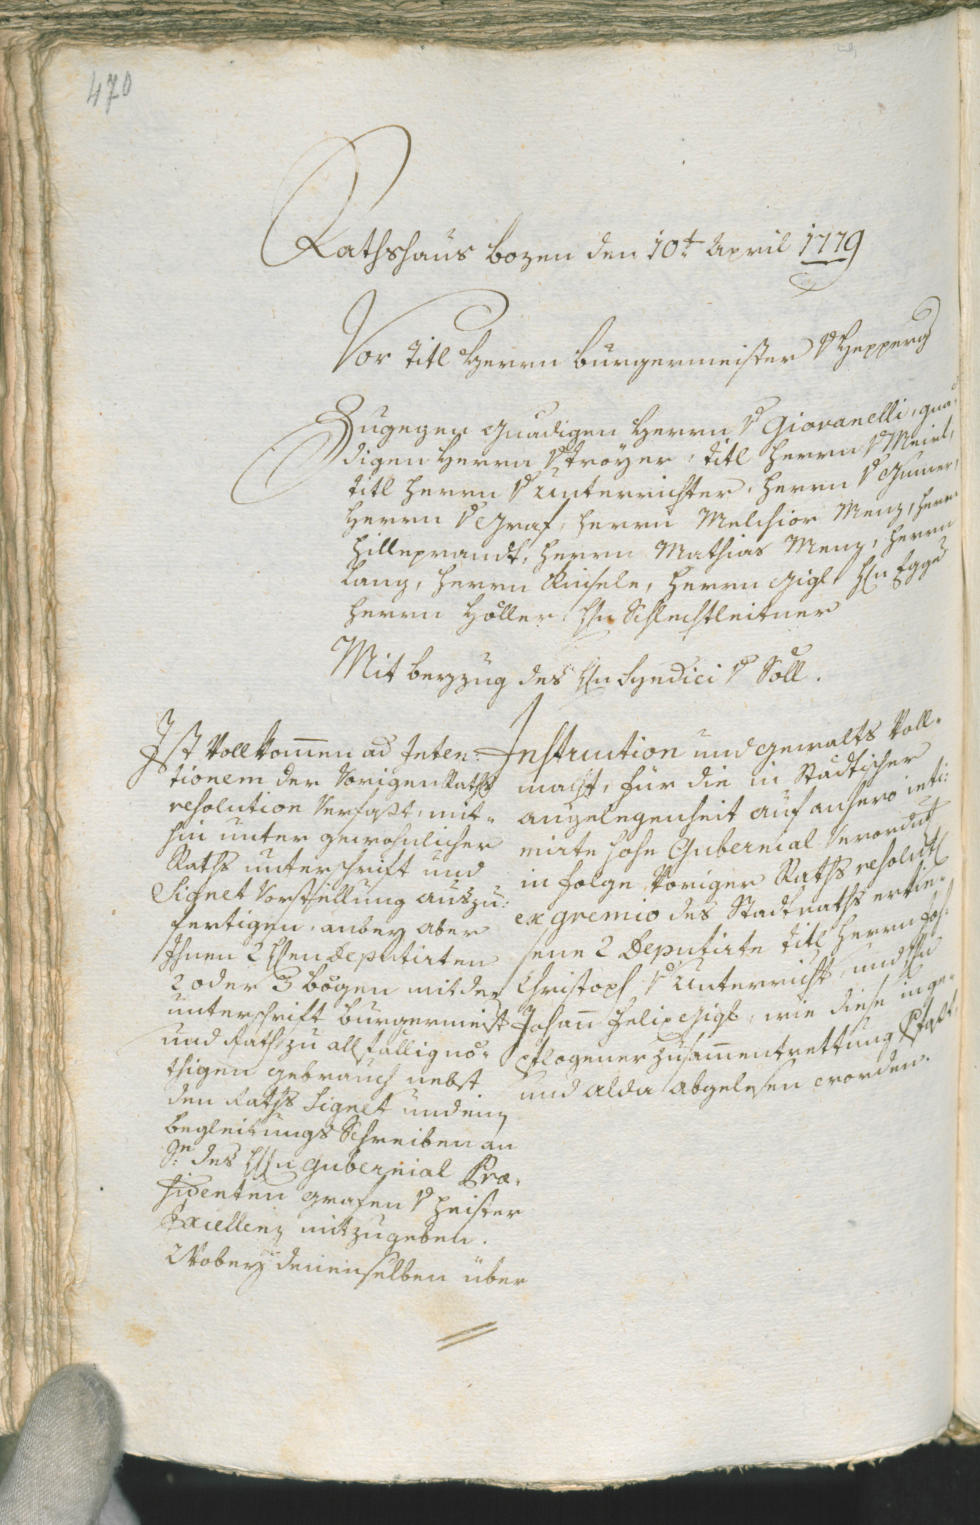 470
Rathshaus Bozen den 10t April 1779
Vor titl Herrn Burgermeister v Hepperg
Zugegen gnädigen Herrn v Giovanelli, gnä-
digen Herrn v Troÿer, titl Herrn v Meirl,
titl Herrn v Unterrichter, Herrn v Gumer,
Herrn v Graf, Herrn Melchior Menz, Herrn
Hilleprandt, Herrn Mathias Menz, Herrn
Lang, Herrn Kinsele, Herrn Gigl Hn Egger
Herrn Höller Hn Schlechtleitner
Mit beyzug des Hn Syndici v Söll.
Ist Vollkom̄en ad Inten-
tionem der Vorigen Raths
resolution Verfaßt, mit-
hin unter gewohnlicher
Raths unterschrift und
Signet Vorstellung auszu-
fertigen, anbey aber
Ihnen 2 Hen Deputirten
2 oder 3 bögen mit der
unterschrift Burgermeist
und Rath zu allfällig nö-
thigen gebrauch nebst
den Raths Signet und ein
begleitungs Schreiben an
Sr des Hn Gubernial Præ-
sidenten Grafen v Heister
Excellenz mitzugeben.
Wobey denenselben über
Instruction und gewalts Voll-
macht, für die in Städtischer
angelegenheit auf anhero inti-
mirte hohe Gubernial Verordnĝ
in folge Voriger Raths resolutŏ
ex gremio des Stadtraths erkie-
sene 2 Deputirte titl Herrn Joh:
Christoph v Unterricht und Hn
Johan̄ Felix Gigl, wie diese in ge-
pflogener Zusam̄entrettung
und alda abgelesen worden.